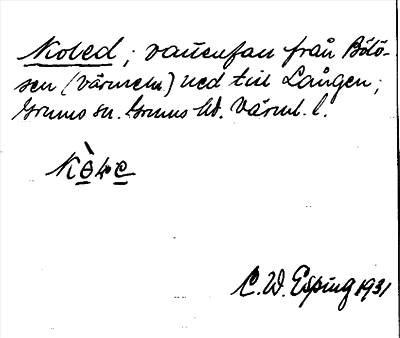 Koled; vattenfall från Bölö-
sen (värmeln) ned till Lången;
Grums sn. Grums hd. Värml. l.
C. W. Esping 1931